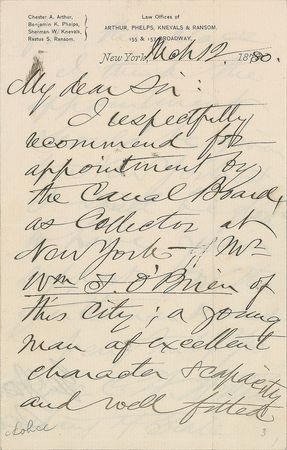 Chester A. Arthur,
Benjamin K. Phelps,
Sherman W. Knevals,
Rastus S. Ransom.
Law Offices of
ARTHUR, PHELPS, KNEVALS & RANSOM.
155 & 157 BROADWAY.
New York, Mch 12. 1880.
My dear Sir:
I respectfully
recommend for
appointment by
the Canal Board,
as Collector at
New York - of Mr
Wm J. O'Brien of
this City; a young
man of excellent
character & capacity
and well fitted
3